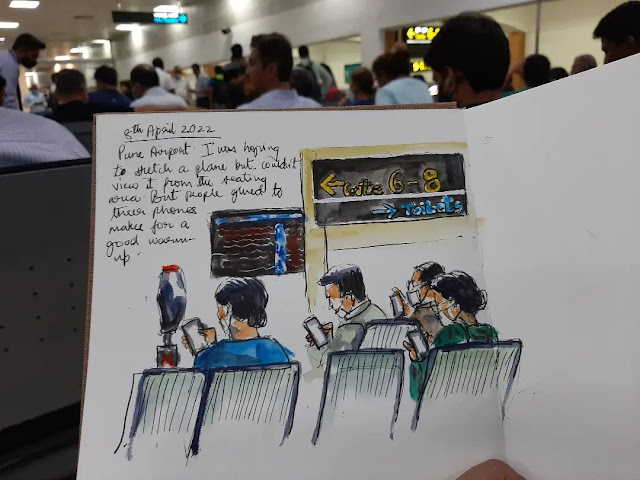 8th April 2022
Pune Airport. I was hoping
to sketch a plane but couldn't
view it from the seating
area. But people glued to
their phones
make for a
good warm-
up.
← Gate 6-8
→ Toilets